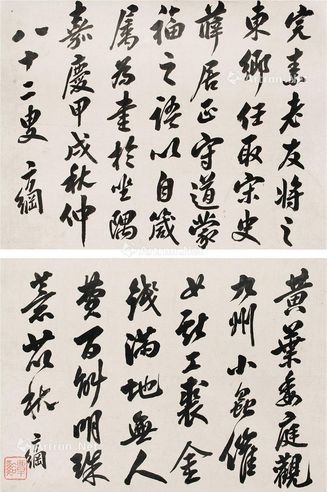 完素老友將之
東鄉任取宋史
薛居正守道蒙
福之語以自箴
属為書於坐隅
嘉慶甲戌秋仲
八十二叟 方綱
黃葉委庭觀
九州小蟲催
女獻工裘金
錢滿地無人
費百斛明珠
薏苡秋 綱